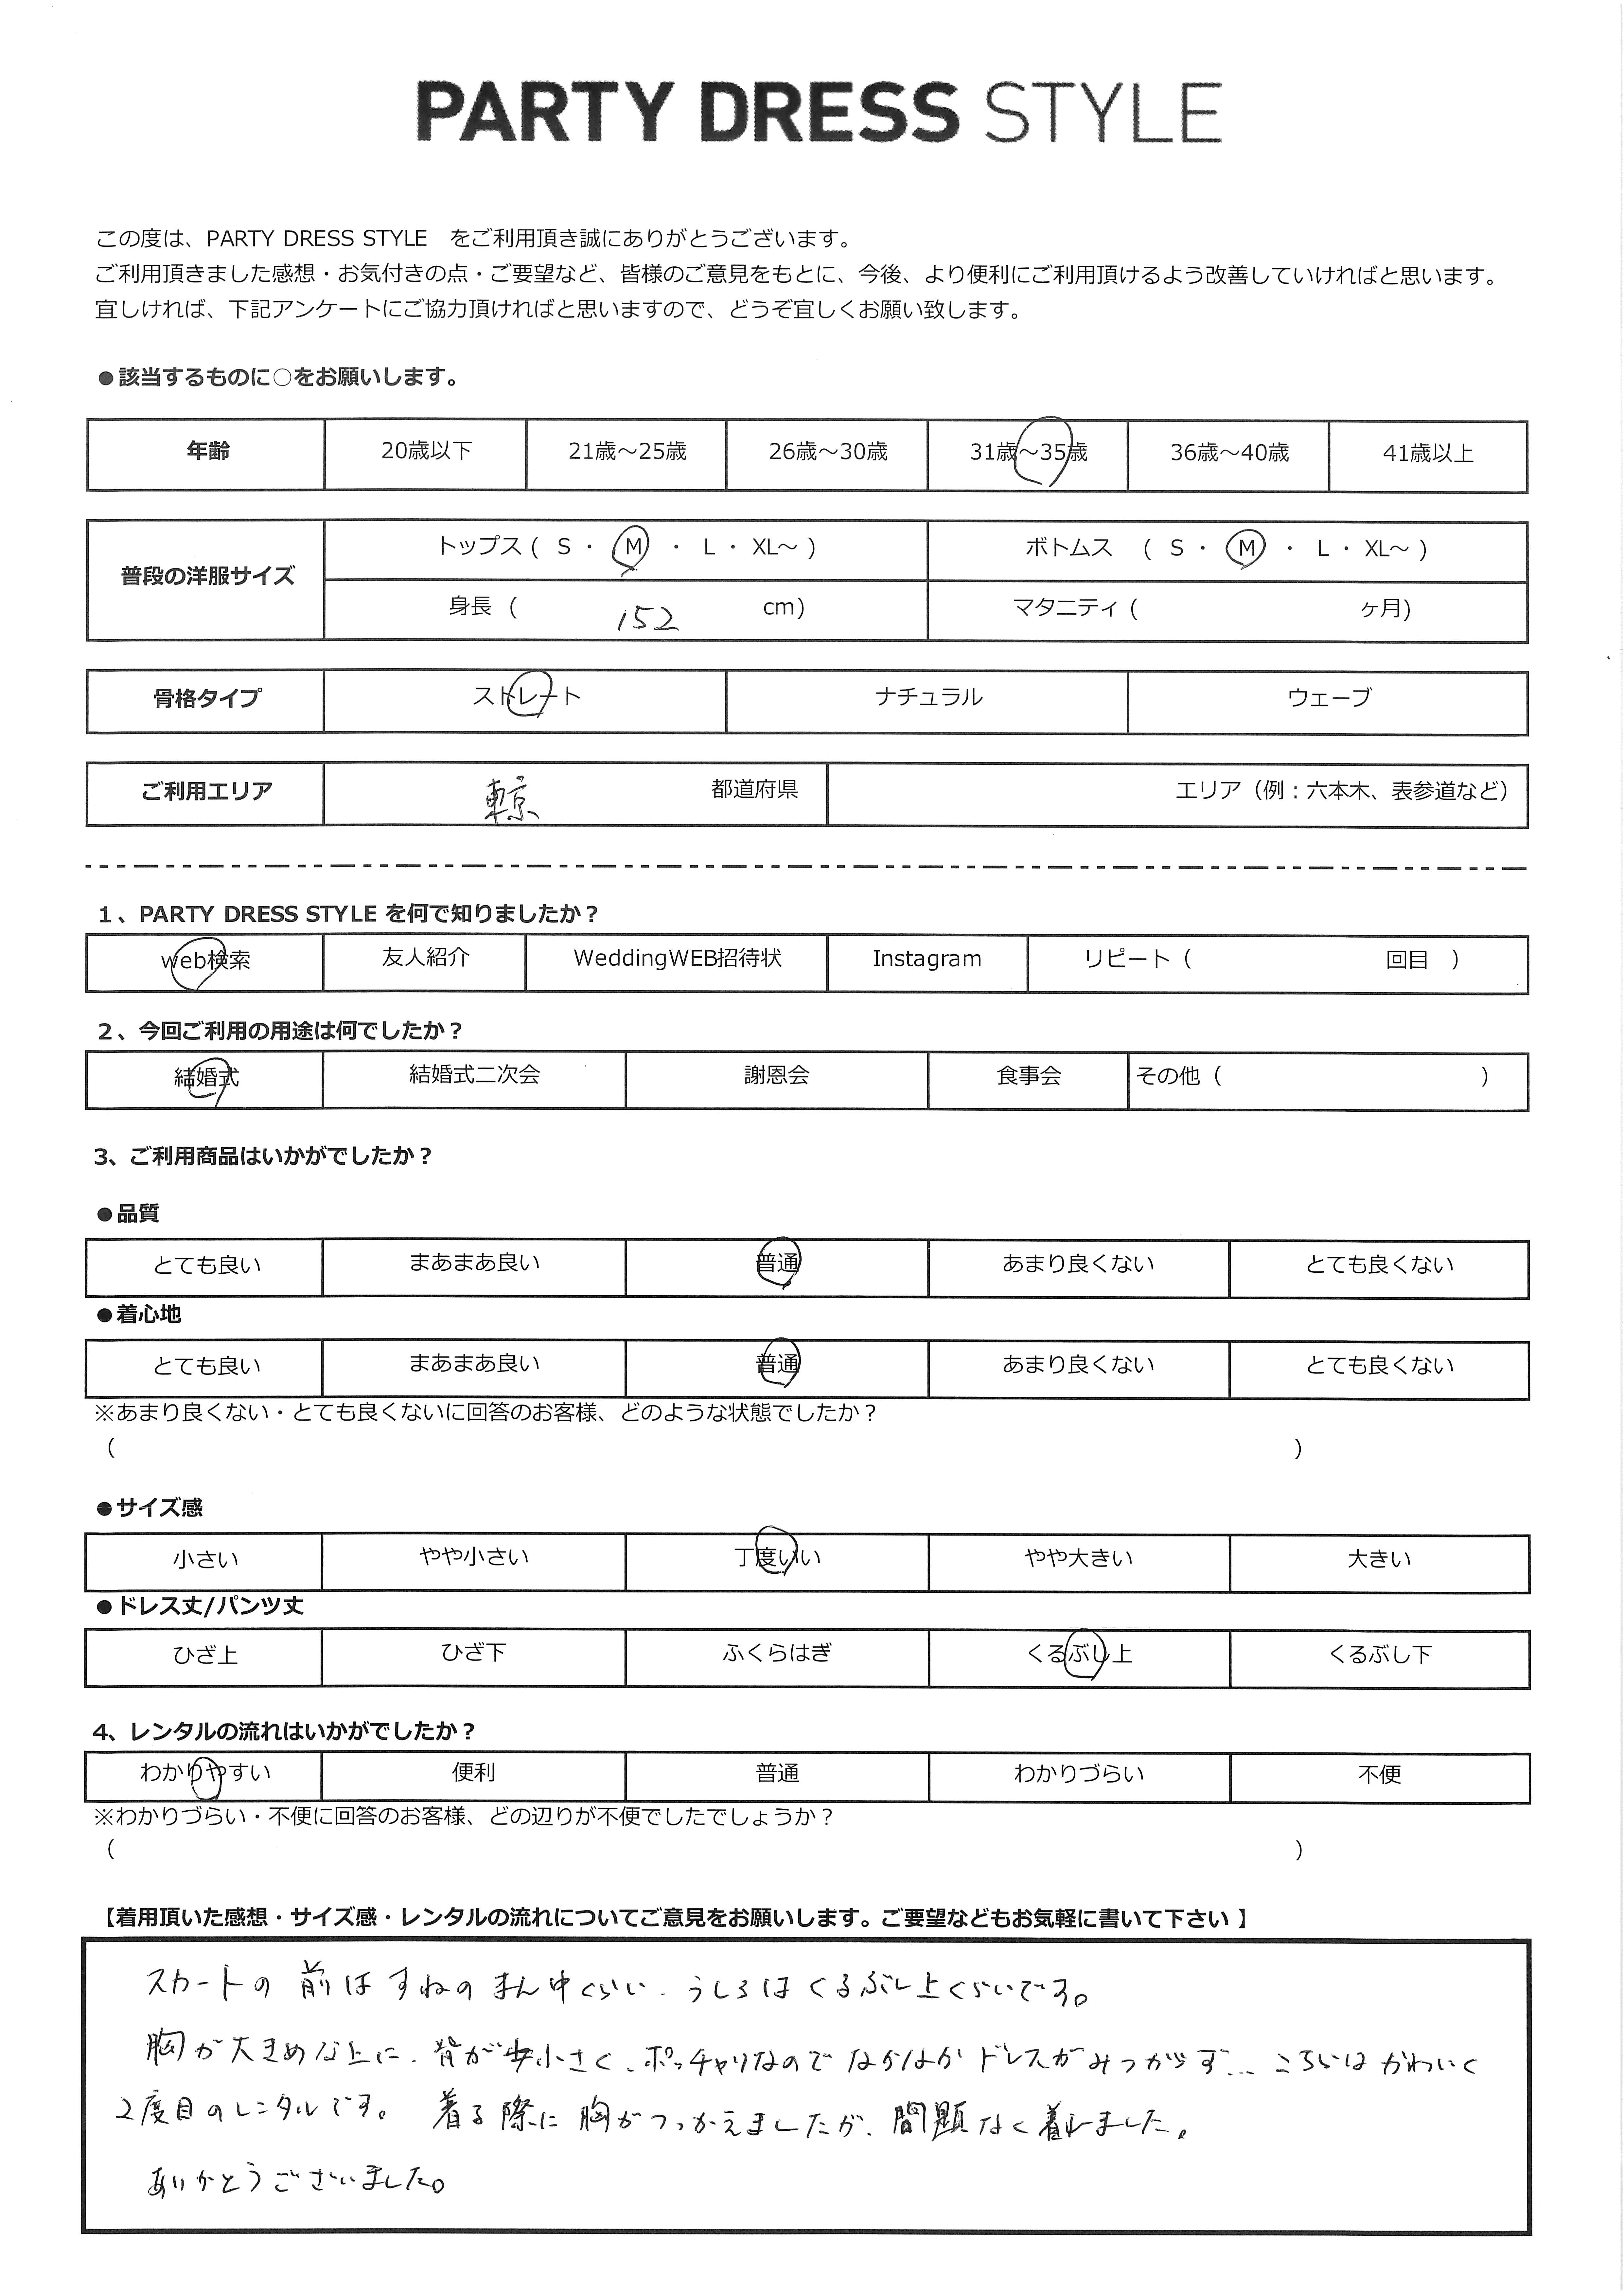 PARTY DRESS STYLE
この度は、PARTY DRESS STYLE　をご利用頂き誠にありがとうございます。
ご利用頂きました感想・お気付きの点・ご要望など、皆様のご意見をもとに、今後、より便利にご利用頂けるよう改善していければと思います。
宜しければ、下記アンケートにご協力頂ければと思いますので、どうぞ宜しくお願い致します。
●該当するものに○をお願いします。
年齢 20歳以下 21歳～25歳 26歳～30歳 31歳～35歳 36歳～40歳 41歳以上
普段の洋服サイズ トップス ( S ・ M ・ L ・ XL～ ) ボトムス ( S ・ M ・ L ・ XL～ )
身長 ( 152 cm) マタニティ ( ヶ月)
骨格タイプ ストレート ナチュラル ウェーブ
ご利用エリア 東京 都道府県 エリア（例：六本木、表参道など）
1、PARTY DRESS STYLE を何で知りましたか？
web検索 友人紹介 WeddingWEB招待状 Instagram リピート（ 回目 ）
2、今回ご利用の用途は何でしたか？
結婚式 結婚式二次会 謝恩会 食事会 その他（ ）
3、ご利用商品はいかがでしたか？
●品質
とても良い まあまあ良い 普通 あまり良くない とても良くない
●着心地
とても良い まあまあ良い 普通 あまり良くない とても良くない
※あまり良くない・とても良くないに回答のお客様、どのような状態でしたか？
（ ）
●サイズ感
小さい やや小さい 丁度いい やや大きい 大きい
●ドレス丈/パンツ丈
ひざ上 ひざ下 ふくらはぎ くるぶし上 くるぶし下
4、レンタルの流れはいかがでしたか？
わかりやすい 便利 普通 わかりづらい 不便
※わかりづらい・不便に回答のお客様、どの辺りが不便でしたでしょうか？
（ ）
【着用頂いた感想・サイズ感・レンタルの流れについてご意見をお願いします。ご要望などもお気軽に書いて下さい 】
スカートの前はすねのまん中くらい、うしろはくるぶし上くらいです。
胸が大きめな上に、背が小さく、ポッチャリなのでなかなかドレスがみつからず… こちらはかわいく
2度目のレンタルです。 着る際に胸がつっかえましたが、問題なく着れました。
ありがとうございました。